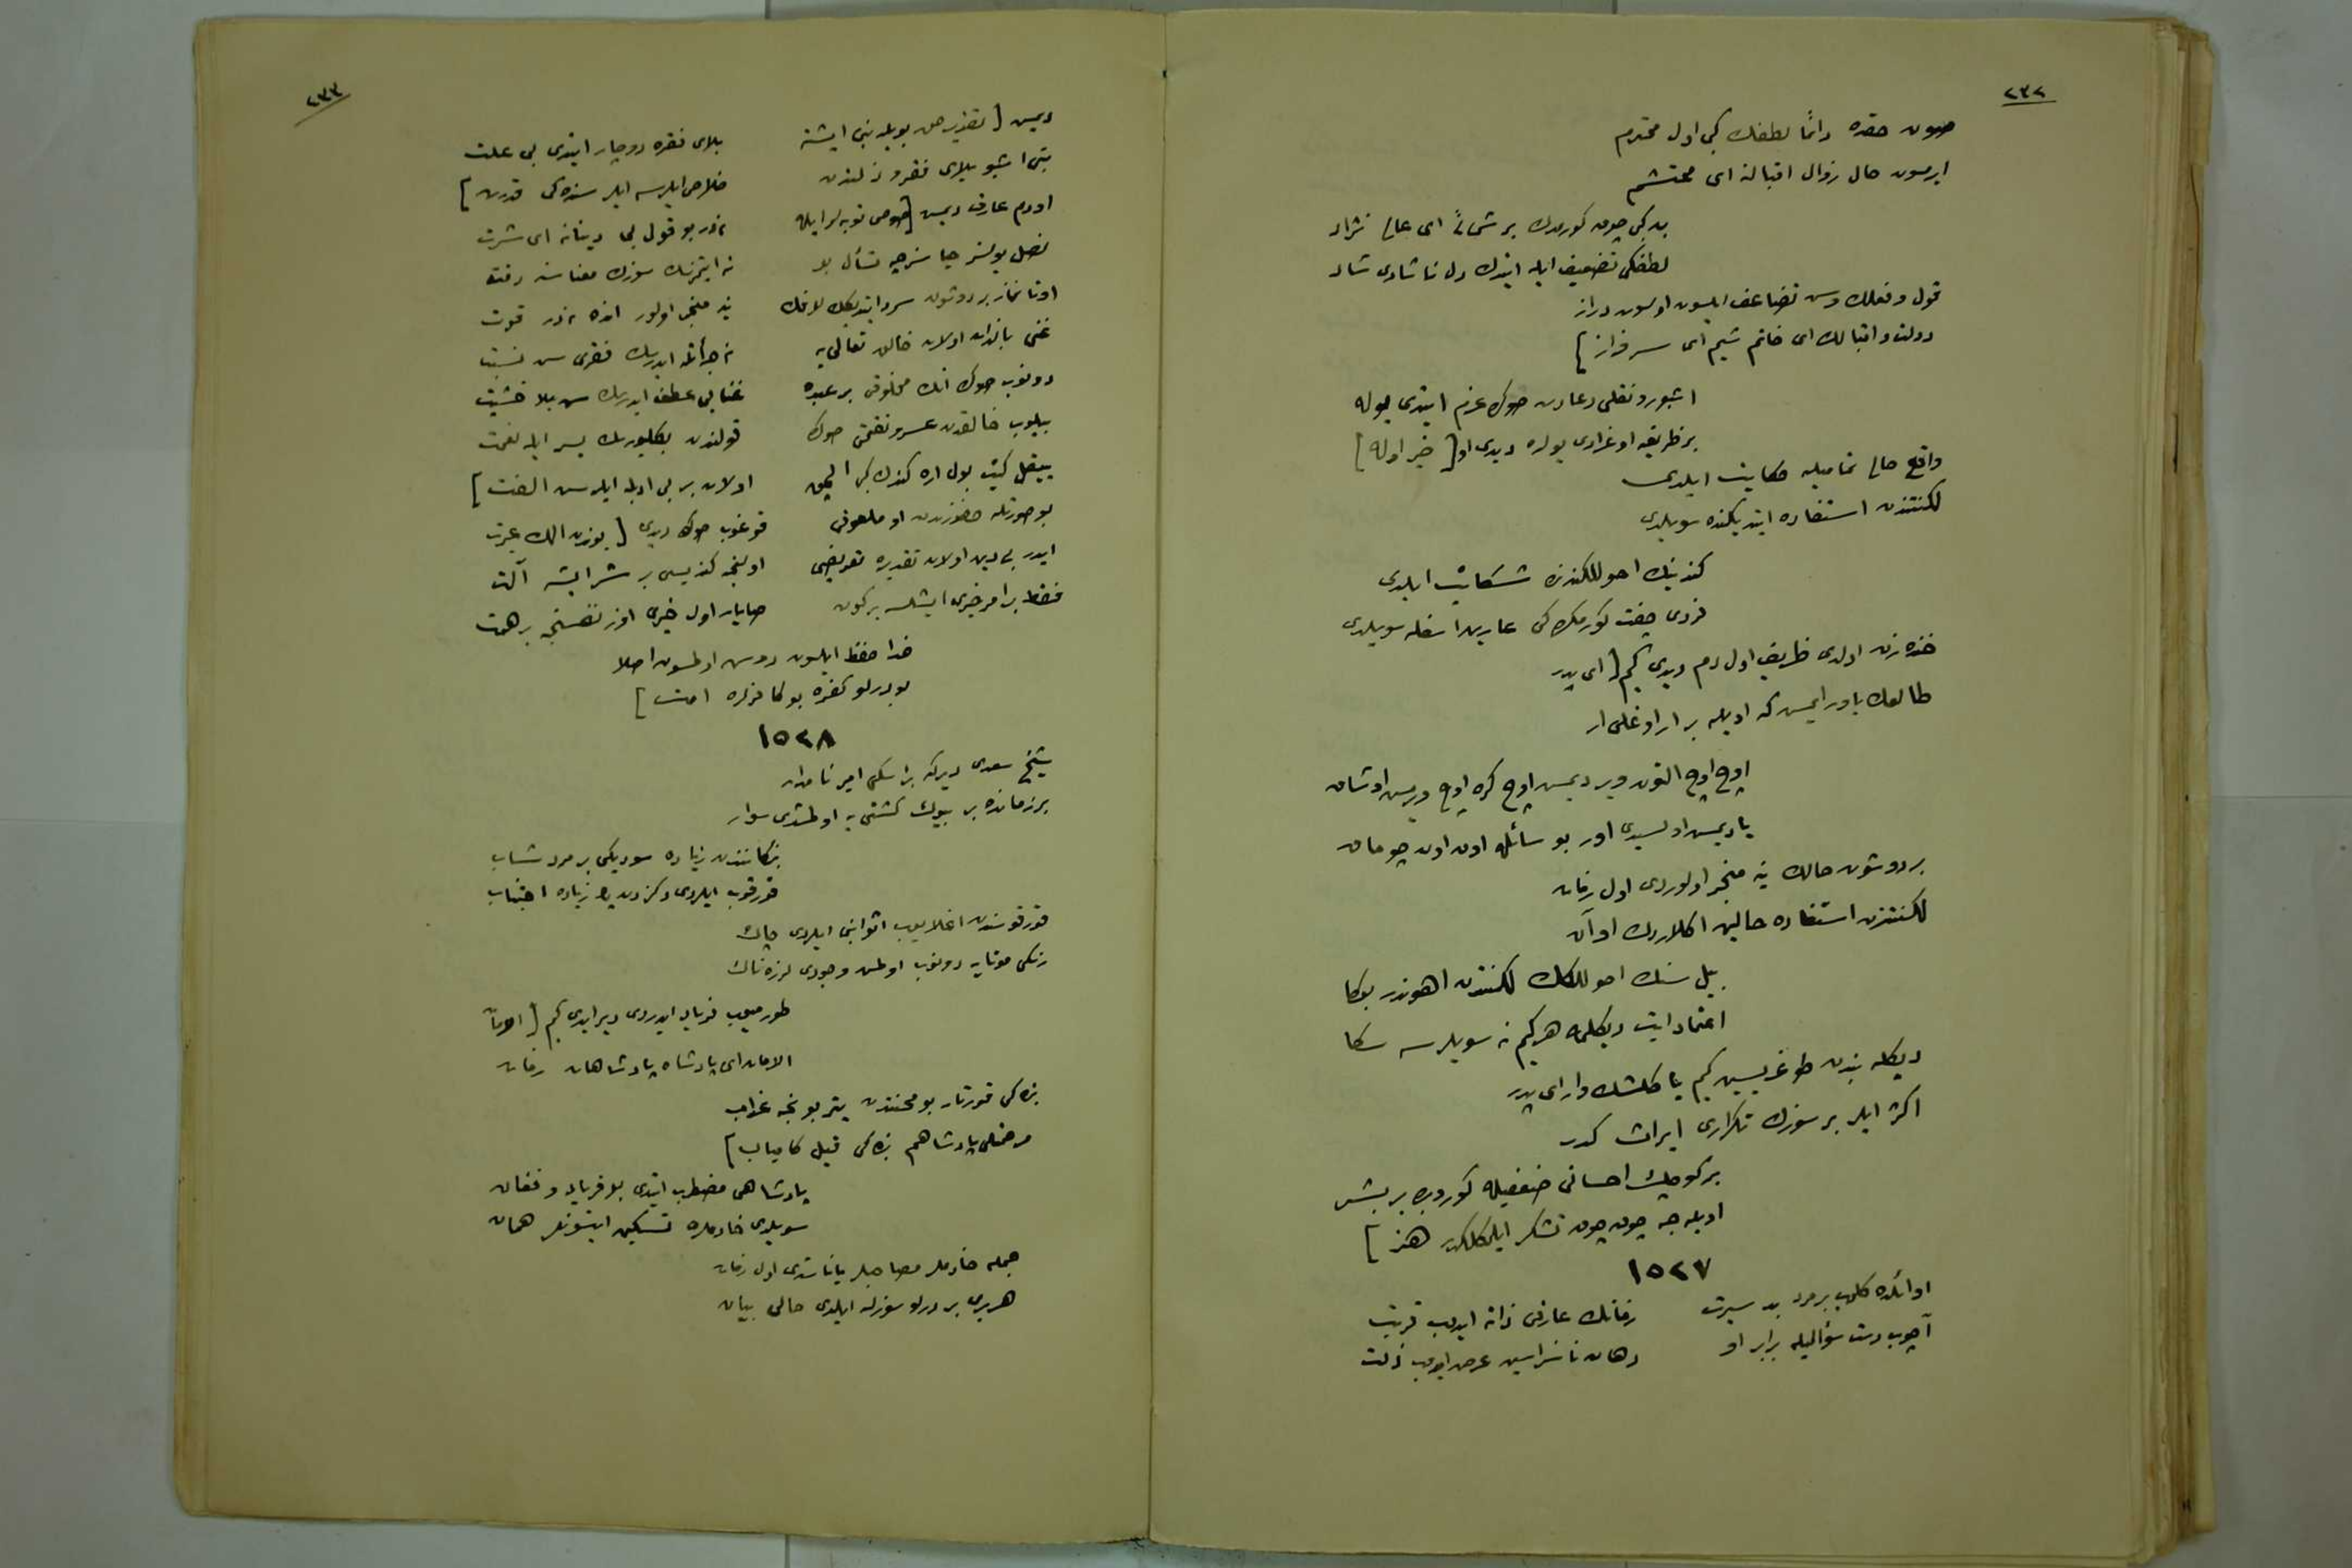 ٢٣٢
صون حقده دائما لطفك كبی اول محترم
ایرمسون حال زوال اقبالڭه ای محتشم
بد كبی چون كورمدك بر شی‌ٔ ای عالی نژاد
لطفكی تضعیف ایله ایتدك دل ناشادی شاد
قول و فعلك وسن تضاعف ایلسون اولسون دراز
دولت و اقبالك ای خاتم شیم ای سرفراز ]
اشبو رونقلی دعادن صوڭ عزم ایتدی یوله
بر ظریفه اوغرادی یولده دیدی او [ خیر اوله ]
واقع حالی تمامیله حكایت ایلدی
لكنتندن استفاده ایتدیكنده سویلدی
كندینك احوللكندن شكایت ایلدی
فردی چفت كورمك كی عارین اسفله سویلدی
خنده‌زن اولدی ظریف اول دم دیدی كیم [ ای پدر
طالعك یاور ایمش كه اویله بر ار اوغلی ار
اوچ اوچ التون ویر دیمش اوچ كره اوچ ویرمش اوشاق
یا دیمش اولسیدی اور بو سائله اون اون چوماق
بر دوشون حالك نه منجر اولوردی اول زمان
لكنتندن استفاده حالین اكلاردك او آن
بیل سنك احوللكك لكنتدن اهوندر بوكا
اعتماد ایت دیكله هر كیم نه سویلرسه سكا
دیكله بندن طوغریسن كیم یاكلشك وار ای پدر
اكثر ایلر بر سوزك تكراری ایراث كدر
بر كوچك احسانی ضعفیله كوررده بر بشر
اویله‌جه چون چون تشكر ایلمكلكدر هنر ]
١٥٢٧
اوائلده كلوب بر مرد بد سیرت   زمانك عارفی ذاته ایدوب قربت
آچوب دست سؤالیله برابر او   دهان ناسزاسین عرض ایدوب ذلت
٢٣٣
دیمش [ تقدیر حق بویله بنی ایشته   بلای فقره دوچار ایتدی بی علت
بنی اشبو بلای فقر و ذلتدن   خلاص ایلرسه ایلر سنده‌كی قدرت ]
اودم عارف دیمش [ توبه‌لر ایله   نه‌در بو قول بی دینانه ای شرت
   نه ایتمزسك سوزك معناسنه دقت
اوتانماز بر دوشون سرد ایتدیكك لافك   نه منجر اولور اندە نه‌در قوت
غنی بالذات اولان خالق تعالی‌یه   نه جرأتله ایدرسك فقری سن نسبت
دونوب صوڭ انك مخلوقی بر عبده   غنایی عطف ایدرسك سن بلا خشیت
بیلوب خالقدن عسر و نقمتی صوڭ   قولندن بكلیورسك یسر ایله نعمت
   اولان بر بی ادبله ایلرسن الفت ]
بو صورتله حضورندن او ملعونی   قوغوب صوڭ دیدی [ بوندن الك عبرت
ایدر بی دین اولان تقدیره تعریضی   اولنجه كندیسی بر شر ایشه آلت
فقط بر امر خیری ایشلسه بر كون   صایار اول خیری اوز نفسنجه بر همت
خدا حفظ ایلسون دوس اولمسون اصلا
بو درلو كفره بو كافرلره امت ]
١٥٢٨
شیخ سعدی دیركه بر اسكی امیر نامدار
بر زمانده بر بیوك كشتی‌یه اولمشدی سوار
بنكانندن زیاده سودیكی بر مرد شاب
قورقوب ایلردی دكزدن پك زیاده اجتناب
قورقوسندن اغلایوب اثوابنی ایلردی چاك
رنكی موتایه دونوب اولمش وجودی لرزه‌ناك
طورمیوب فریاد ایدردی دیر ایدی كیم [ الامان
الامان ای پادشاه پادشاهان زمان
بنده‌كی قورتار بو محنتدن یتر بونجه عذاب
مرحمتلی پادشاهم بنده‌كی قیل كامیاب ]
پادشاهی مضطرب ایتدی بو فریاد و فغان
سویلدی خادملره تسكین ایتسونلر همان
جمله خادملر مصاحبلر یاناشدی اول زمان
هر بری بر درلو سوزله ایلدی حالی بیان